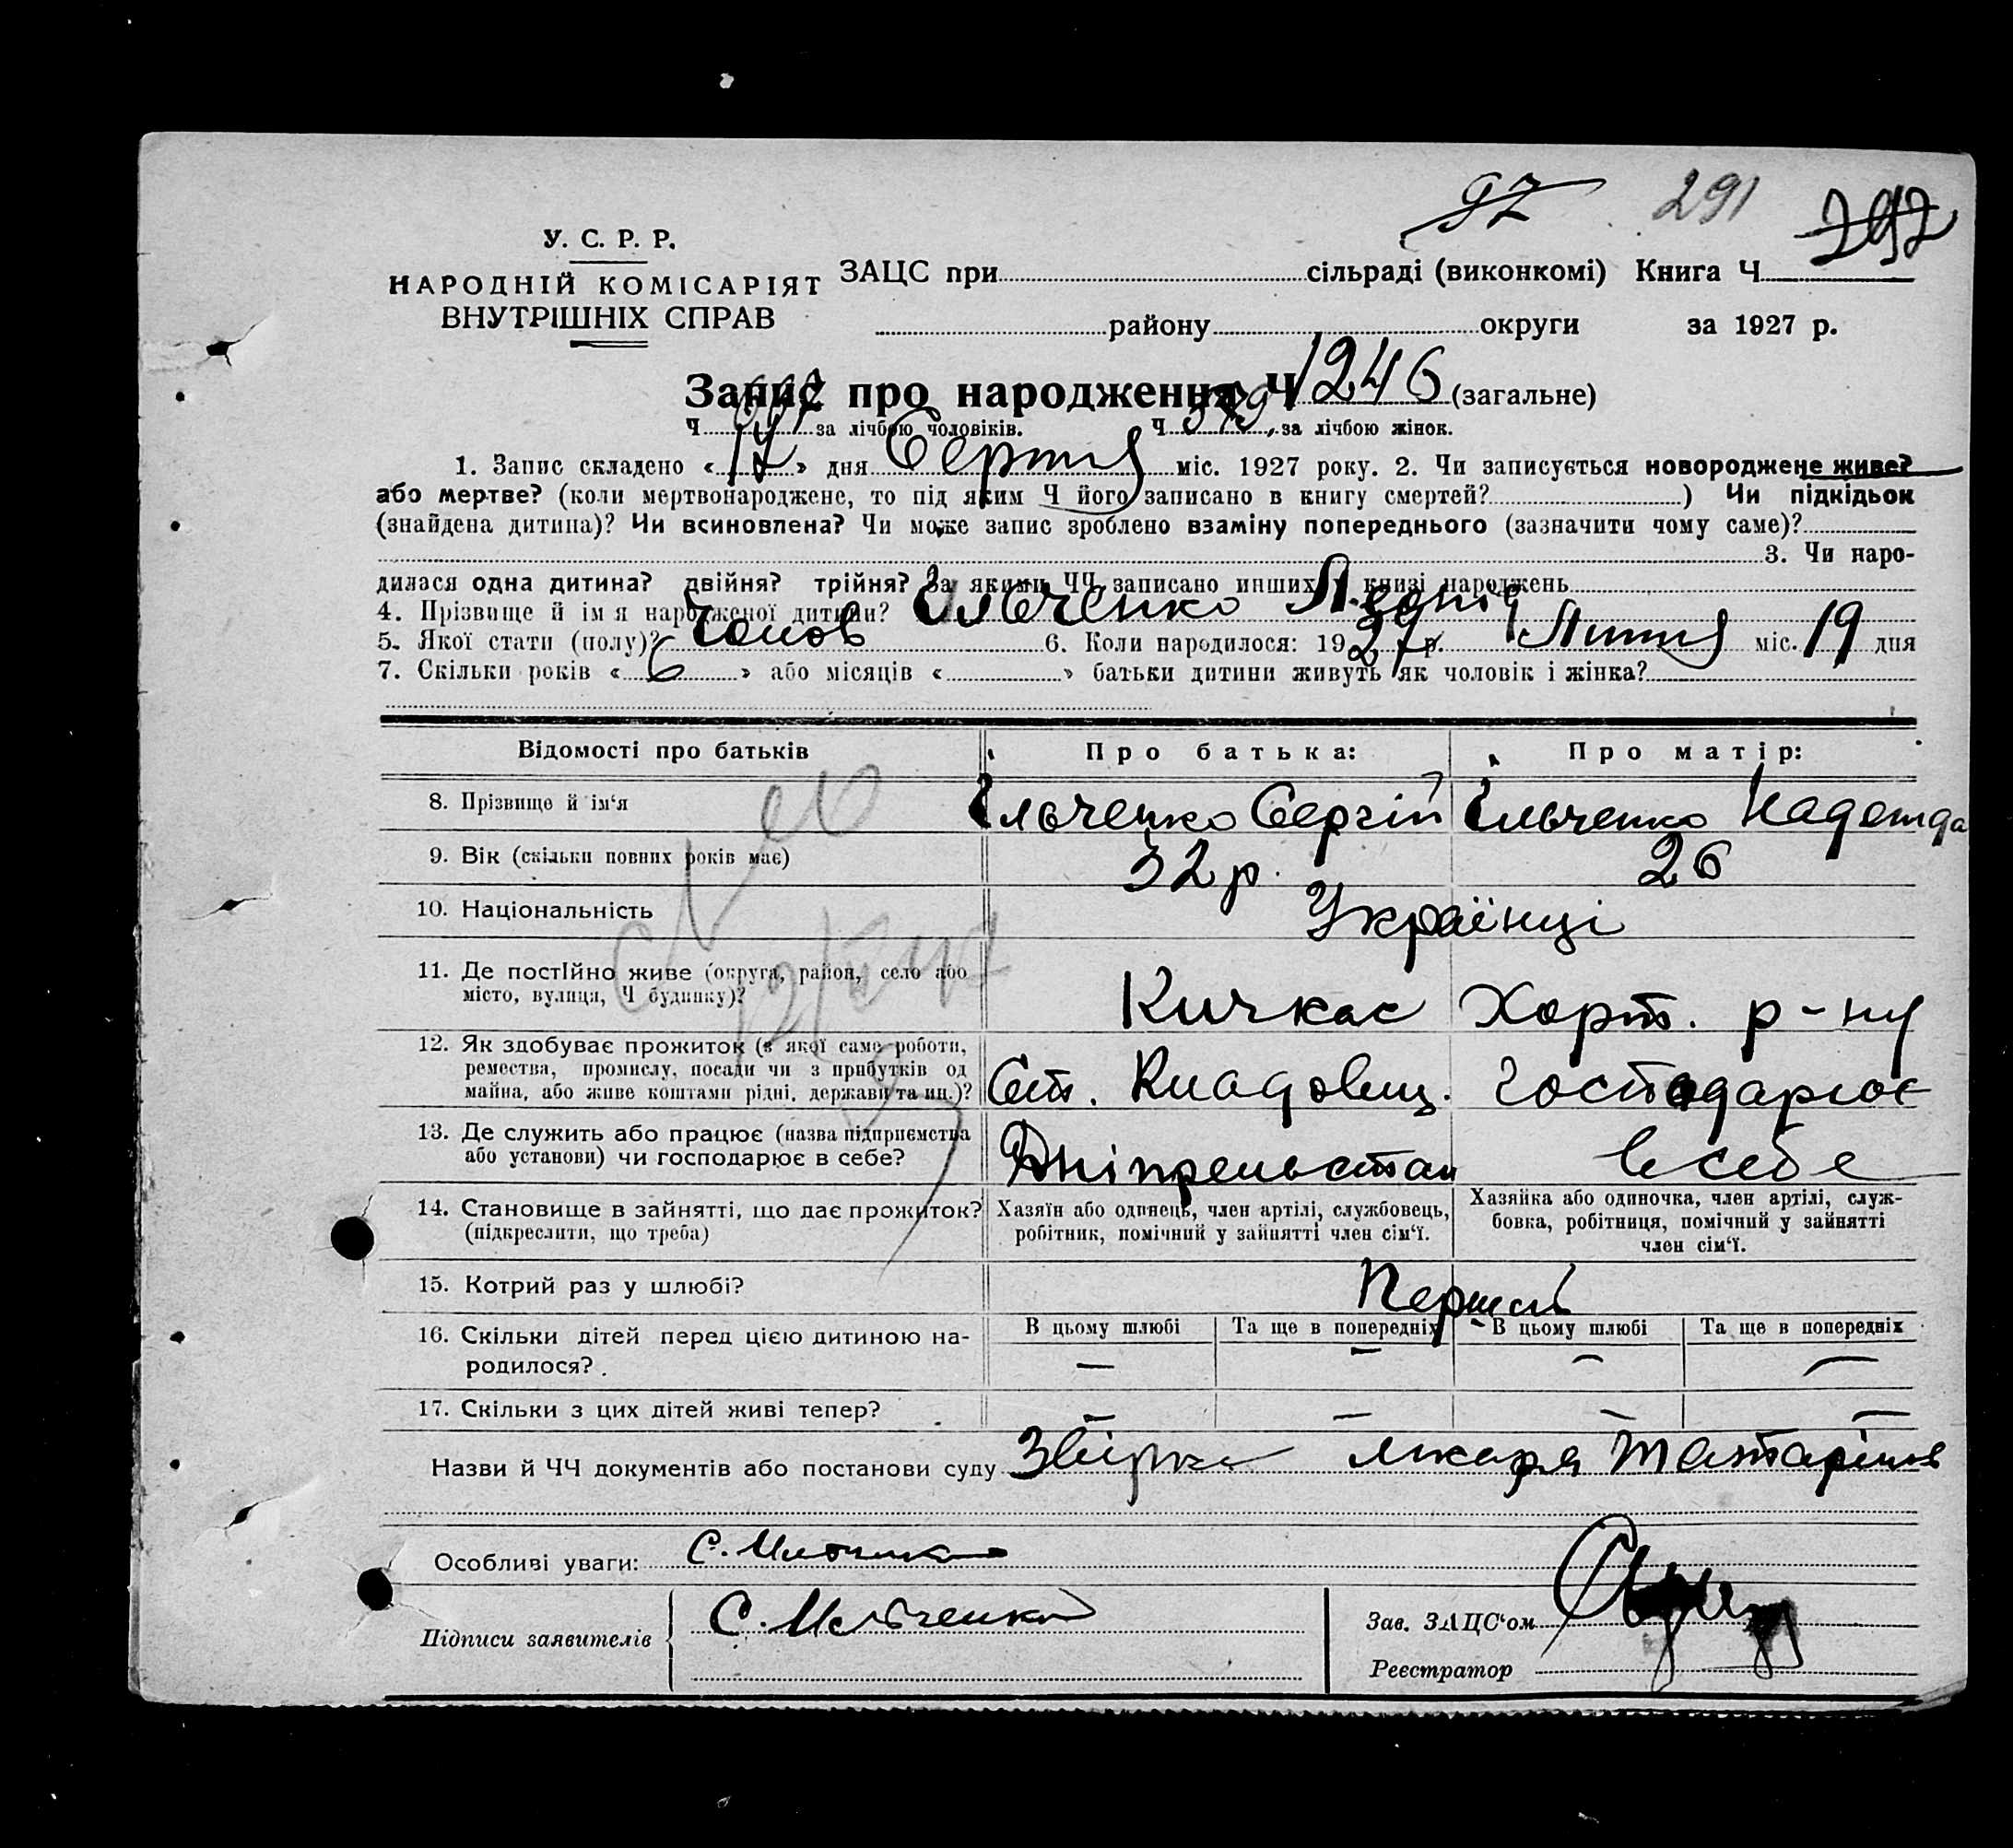 97 291 292
У. С. Р. Р.
НАРОДНІЙ КОМІСАРІЯТ
ВНУТРІШНІХ СПРАВ
ЗАЦС при сільраді (виконкомі) Книга Ч
району округи за 1927 р.
Запис про народження Ч 1246 (загальне)
Ч за лічбою чоловіків. Ч за лічбою жінок.
1. Запис складено « 17 » дня Серпня міс. 1927 року. 2. Чи записується новороджене живе?
або мертве? (коли мертвонароджене, то під яким Ч його записано в книгу смертей? ) Чи підкідьок
(знайдена дитина)? Чи всиновлена? Чи може запис зроблено взаміну попереднього (зазначити чому саме)?
3. Чи наро-
дилася одна дитина? двійня? трійня? За якими ЧЧ записано инших у книзі народжень
4. Прізвище й імя народженої дитини? Ільченко Леонід
5. Якої стати (полу)? Чолов 6. Коли народилося: 1927 р. Липня міс. 19 дня
7. Скільки років « 6 » або місяців « » батьки дитини живуть як чоловік і жінка?
Відомості про батьків Про батька: Про матір:
8. Прізвище й ім'я Ільченко Сергій Ільченко Надежда
9. Вік (скільки повних років має) 32 р. 26
10. Національність Українці
11. Де постійно живе (округа, район, село або
місто, вулиця, Ч будинку)? Кичкас Хорт. р-ну
12. Як здобуває прожиток (з якої саме роботи,
ремества, промислу, посади чи з прибутків од
майна, або живе коштами рідні, держави та ин.)? Ст. Кладовщ. господарює
13. Де служить або працює (назва підприємства
або установи) чи господарює в себе? Дніпрельстан в себе
14. Становище в зайнятті, що дає прожиток?
(підкреслити, що треба)
Хазяїн або одинець, член артілі, службовець,
робітник, помічний у зайнятті член сім'ї.
Хазяйка або одиночка, член артілі, служ-
бовка, робітниця, помічний у зайнятті
член сім'ї.
15. Котрий раз у шлюбі? Перший
16. Скільки дітей перед цією дитиною на-
родилося?
В цьому шлюбі Та ще в попередніх В цьому шлюбі Та ще в попередніх
— — — —
17. Скільки з цих дітей живі тепер? — — — —
Назви й ЧЧ документів або постанови суду лікаря
Особливі уваги: С. Ильченко
Підписи заявителів С. Ильченко
Зав. ЗАЦС'ом
Реєстратор